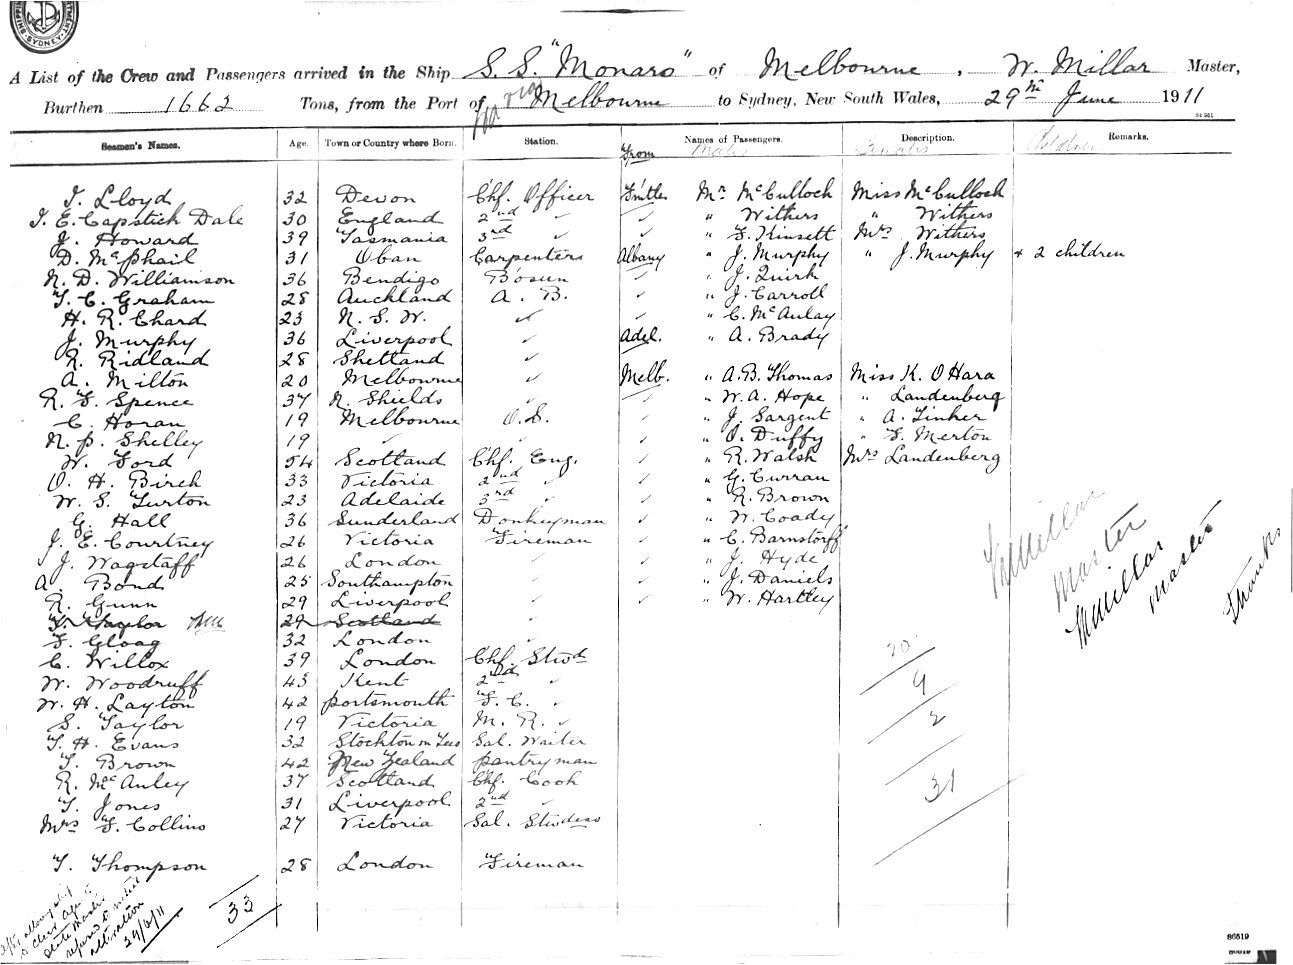 A List of the Crew and Passengers arrived in the Ship S.S. "Monaro" of Melbourne, W. Millar Master,
Burthen 1662 Tons, from the Port of via Melbourne to Sydney, New South Wales, 29th June 1911
Seamen's Names. Age. Town or Country where Born. Station. Names of Passengers. Description. Remarks.
From Males Females Children
T. Lloyd 32 Devon Chf. Officer F'mtle Mr. McCulloch Miss McCulloch
T. E. Capstick Dale 30 England 2nd ✓ ✓ " Withers " Withers
J. Howard 39 Tasmania 3rd ✓ ✓ " F. Kinsett Mrs Withers
D. McPhail 31 Oban Carpenters Albany " J. Murphy " J. Murphy + 2 children
N. D. Williamson 36 Bendigo Bosun ✓ " J. Quirk
T. C. Graham 28 Auckland A. B. ✓ " J. Carroll
H. R. Chard 23 N. S. W. ✓ ✓ " C. McAulay
J. Murphy 36 Liverpool ✓ Adel. " A. Brady
R. Ridland 28 Shetland ✓
A. Milton 20 Melbourne ✓ Melb. " A. B. Thomas Miss K. O'Hara
R. F. Spence 37 N. Shields ✓ ✓ " W. A. Hope " Landenberg
C. Horan 19 Melbourne O. S. ✓ " J. Sargent " A. Tinker
N. P. Shelley 19 ✓ ✓ ✓ " O. Duffy " F. Merton
W. Ford 54 Scotland Chf. Eng. ✓ " R. Walsh Mrs Landenberg
O. H. Birch 33 Victoria 2nd ✓ ✓ " G. Curran
W. S. Turton 23 Adelaide 3rd ✓ ✓ " R. Brown
G. Hall 36 Sunderland Donkeyman ✓ " W. Coady
J. E. Courtney 26 Victoria Fireman ✓ " C. Barnstorff
J. Wagstaff 26 London ✓ ✓ " J. Hyde
A. Bond 25 Southampton ✓ ✓ " J. Daniels
R. Gunn 29 Liverpool ✓ ✓ " W. Hartley
T. Taylor 29 Scotland ✓
F. Gloag 32 London ✓
C. Willox 39 London Chf. Stwd
W. Woodruff 43 Kent 2nd ✓
W. H. Layton 42 Portsmouth F. C. ✓
S. Taylor 19 Victoria M. R. ✓
T. H. Evans 32 Stockton on Tees Sal. Waiter
T. Brown 42 New Zealand Pantryman
R. McAuley 37 Scotland Chf. Cook
T. Jones 31 Liverpool 2nd ✓
Mrs F. Collins 27 Victoria Sal. Stwdess
T. Thompson 28 London Fireman
33
20
9
2
31
W Millar
Master
W Millar
Master
29/6/11
86519